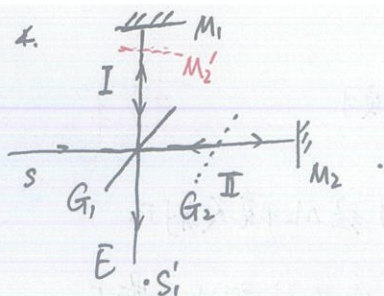 4.
M₁
M₂'
I
S
G₁
G₂
II
M₂
E
S₁'